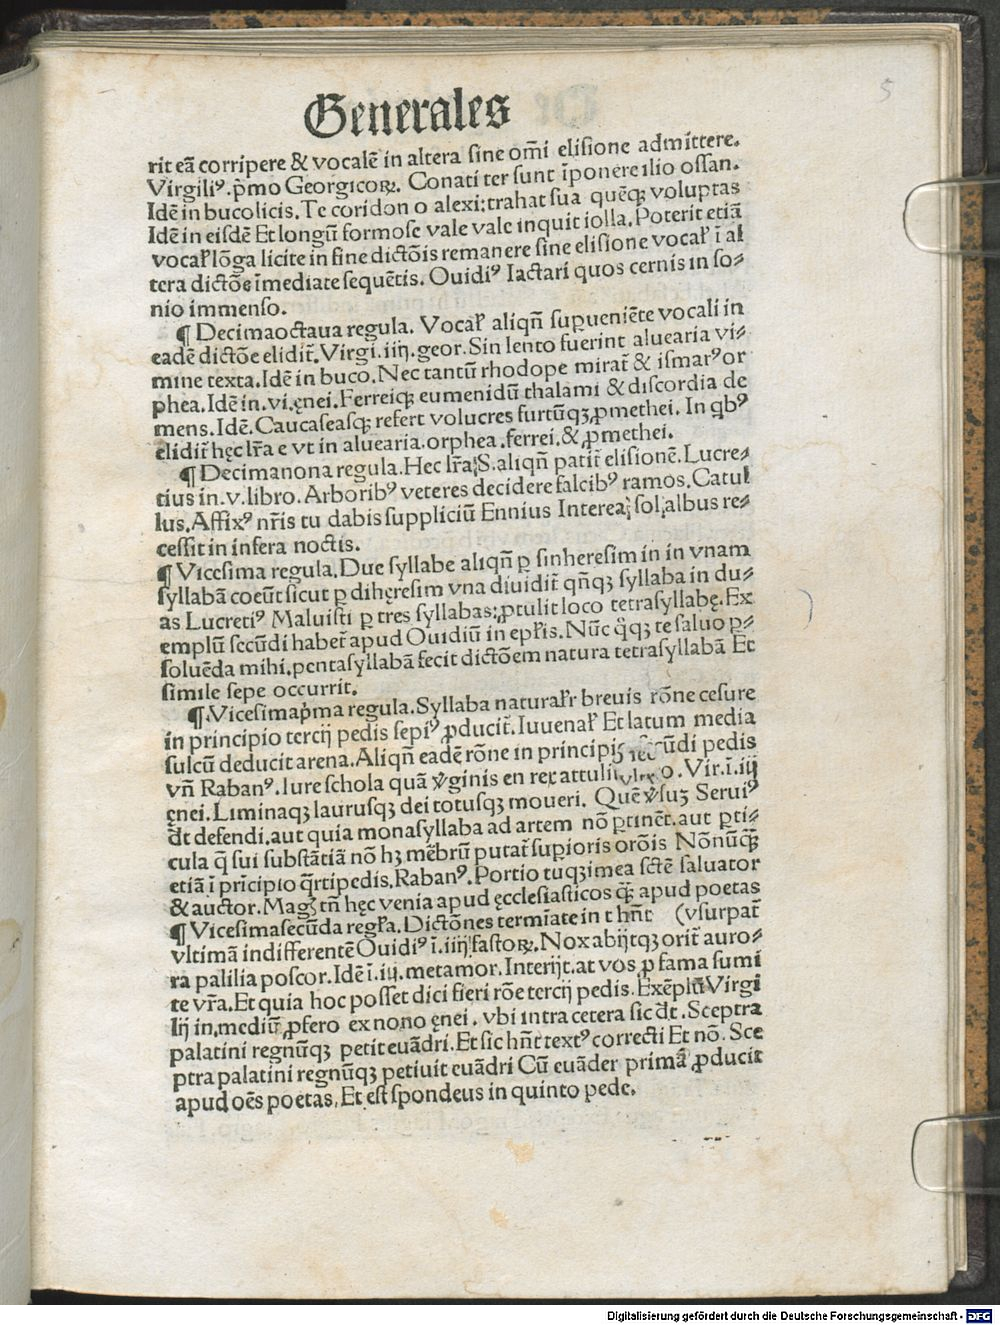 5
Generales
rit eā corripere & vocalē in altera sine om̄i elisione admittere.
Virgiliꝰ. p̄mo Georgicoꝝ. Conati ter sunt īponere ilio ossan.
Idē in bucolicis. Te coridon o alexi: trahat sua quēqꝫ voluptas
Idē in eisdē Et longū formose vale vale inquit iolla. Poterit etiā
vocaľ lōga licite in fine dictōis remanere sine elisione vocaľ ī al
tera dictōe īmediate sequētis. Ouidiꝰ Iactari quos cernis in so⸗
nio immenso.
¶ Decimaoctaua regula. Vocaľ aliqn̄ suꝑueniēte vocali in
eadē dictōe elidit̄. Virgi. iiij. geor. Sin lento fuerint aluearia vi⸗
mine texta. Idē in buco. Nec tantū rhodope mirat̄ & ismarꝰ or
phea. Idē in. vi. ęnei. Ferreiqꝫ eumenidū thalami & discordia de
mens. Idē. Caucaseasqꝫ refert volucres furtūqꝫ ꝓmethei. In qbꝰ
elidit̄ hęc lr̄a e vt in aluearia. orphea. ferrei. & ꝓmethei.
¶ Decimanona regula. Hec lr̄a S. aliqn̄ patit̄ elisionē. Lucre⸗
tius in. v. libro. Arboribꝰ veteres decidere falcibꝰ ramos. Catul
lus. Affixꝰ nr̄is tu dabis suppliciū Ennius Interea sol albus re⸗
cessit in infera noctis.
¶ Vicesima regula. Due syllabe aliqn̄ ꝑ sinheresim in in vnam
syllabā coeūt sicut ꝑ dihęresim vna diuidit̄ qn̄qꝫ syllaba in du⸗
as Lucretiꝰ Maluisti ꝑ tres syllabas: ꝓtulit loco tetrasyllabę. Ex
emplū secūdi habet̄ apud Ouidiū in epľis. Nūc q̊qꝫ te saluo ꝑ⸗
soluēda mihi. pentasyllabā fecit dictōem natura tetrasyllabā Et
simile sepe occurrit.
¶ Vicesimap̄ma regula. Syllaba naturaľr breuis rōne cesure
in principio tercij pedis sepiꝰ ꝓducit̄. Iuuenaľ Et latum media
sulcū deducit arena. Aliqn̄ eadē rōne in principio secūdi pedis
vn̄ Rabanꝰ. Iure schola quā v̄ginis en rex attuli . Vir. ī. iij
ęnei. Liminaqꝫ laurusqꝫ dei totusqꝫ moueri. Quē v̄suꝫ Seruiꝰ
dt̄ defendi. aut quia monasyllaba ad artem nō ꝑtinēt. aut ꝑti⸗
cula q̄ sui substātiā nō hꝫ mēbrū putat̄ suꝑioris orōis Nōnūqꝫ
etiā ī prīcipio q̄rti pedis. Rabanꝰ. Portio tuqꝫ imea sctē saluator
& auctor. Magꝫ tn̄ hęc venia apud ęcclesiasticos qꝫ apud poetas
¶ Vicesimasecūda regľa. Dictōnes termīate in t hn̄t (vsurpat̄
vltimā indifferentē Ouidiꝰ ī. iiij fastoꝝ. Nox abijtqꝫ orit̄ auro⸗
ra palilia poscor. Idē ī. iij. metamor. Interijt. at vos ꝓ fama sumi
te vr̄a. Et quia hoc posset dici fieri rōe tercij pedis. Exēplū Virgi
lij in mediū ꝓfero ex nono ęnei. vbi intra cetera sic dt̄. Sceptra
palatini regnūqꝫ petit euādri. Et sic hn̄t textꝰ correcti Et nō. Sce
ptra palatini regnūqꝫ petiuit euādri Cū euāder primā ꝓducit
apud oēs poetas. Et est spondeus in quinto pede.
Digitalisierung gefördert durch die Deutsche Forschungsgemeinschaft - DFG